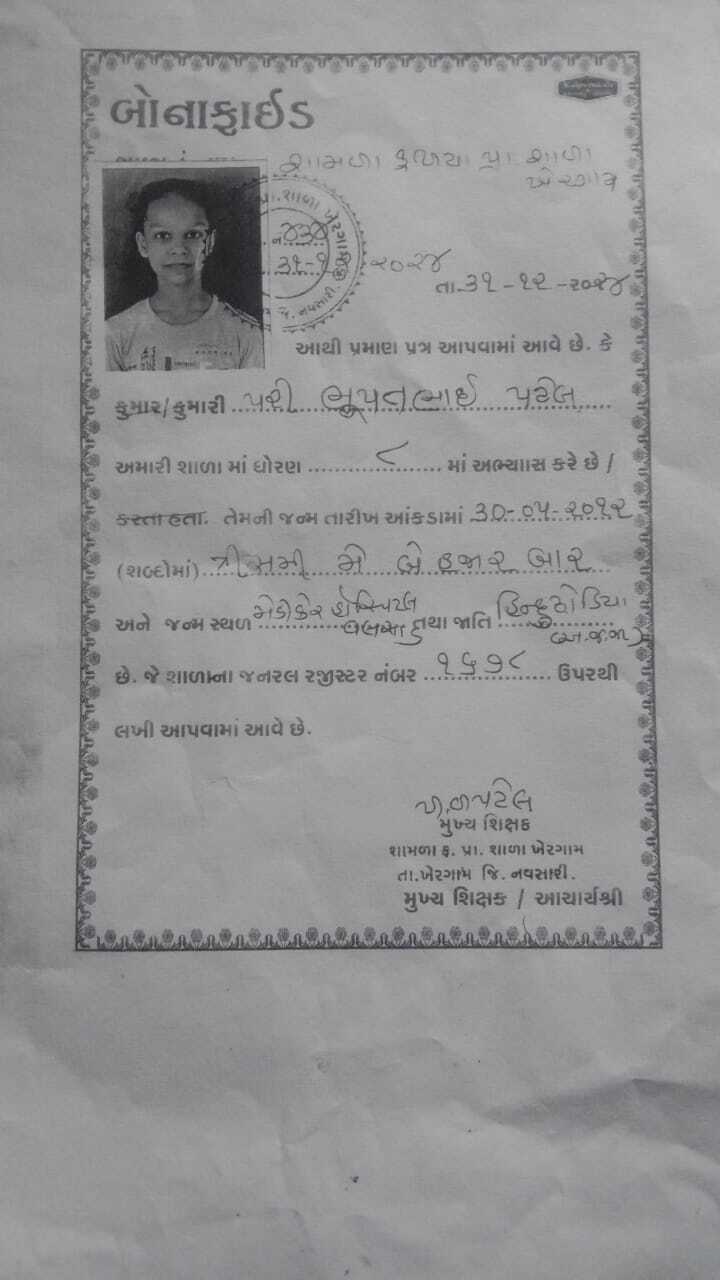 બોનાફાઈડ
શામળા ફળિયા પ્રા. શાળા
ખેરગામ
પ્રા. શાળા
જિ. નવસારી.
૪૩૪
૩૧-૧ ૨૦૨૪
તા.૩૧-૧૨-૨૦૨૪
આથી પ્રમાણ પત્ર આપવામાં આવે છે. કે
કુમાર/કુમારી ..પરી ભૂપતભાઈ પટેલ....
અમારી શાળા માં ધોરણ ..........૮....... માં અભ્યાસ કરે છે /
કરતા હતા. તેમની જન્મ તારીખ આંકડામાં 30-૦૫-૨૦૧૨
(શબ્દોમાં)..ત્રીસમી મે બે હજાર બાર
અને જન્મ સ્થળ ..મેડીકેર હોસ્પિટલ વલસાડ તથા જાતિ ..હિન્દુ ધોડિયા
(અ.જ.જા)
છે. જે શાળાના જનરલ રજીસ્ટર નંબર ..૧૬૭૮.......... ઉપરથી
લખી આપવામાં આવે છે.
પટેલ
મુખ્ય શિક્ષક
શામળા ફ. પ્રા. શાળા ખેરગામ
તા.ખેરગામ જિ. નવસારી.
મુખ્ય શિક્ષક / આચાર્યશ્રી